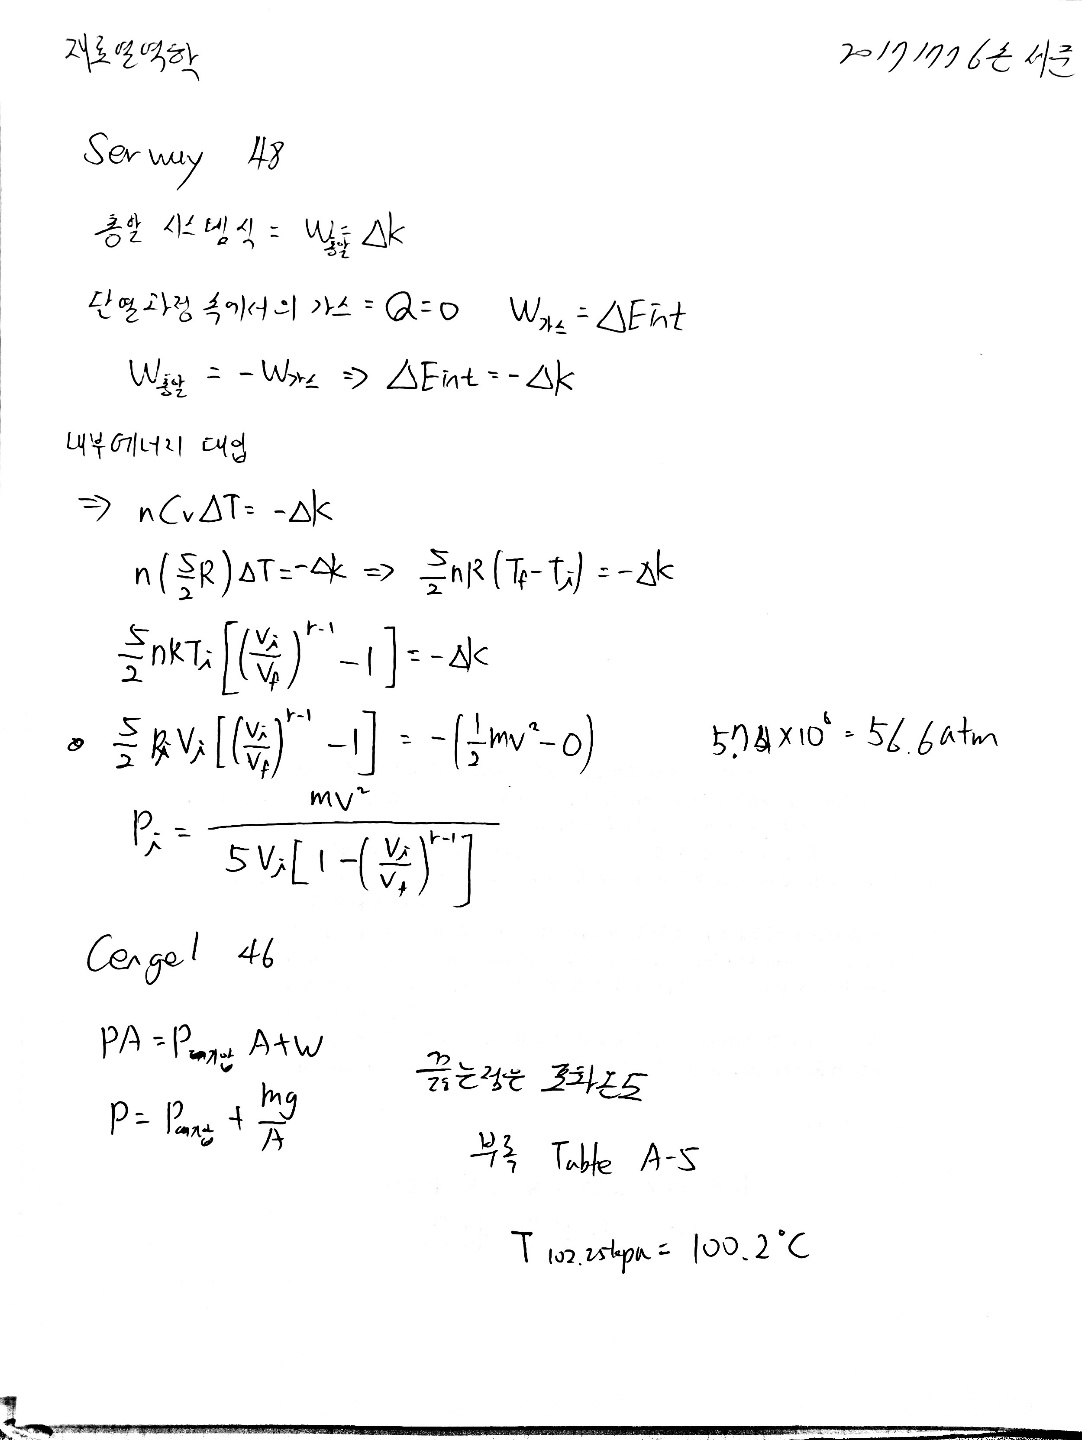 재료열역학
20171776 손세근
Serway 48
총알 시스템 식 = W총알 = Δk
단열과정 속에서의 가스 = Q=0 W가스 = ΔEint
W총알 = -W가스 ⇒ ΔEint = -Δk
내부에너지 대입
⇒ nCvΔT = -Δk
n(5/2 R)ΔT = -Δk ⇒ 5/2 nR(Tf-ti) = -Δk
5/2 nRTi[(Vi/Vf)^(r-1) - 1] = -Δk
5/2 PiVi[(Vi/Vf)^(r-1) - 1] = -(1/2 mv² - 0)
5.74×10⁶ = 56.6atm
Pi = mv² / 5Vi[1-(Vi/Vf)^(r-1)]
Cengel 46
PA = P대기압 A+W
P = P대기압 + mg/A
끓는점은 포화온도
부록 Table A-5
T 102.25kpa = 100.2°C